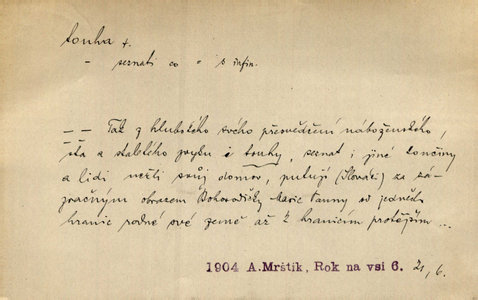 touha f.
- seznati co - s infin.
— — Též z hlubokého svého přesvědčení náboženského,
sta a staletého zvyku i touhy, seznat i jiné končiny
a lidi nežli svůj domov, putují (Slováci) za zá-
zračným obrazem Bohorodičky Marie Panny od jedněch
hranic rodné své země až k hranicím protějším ...
1904 A.Mrštík, Rok na vsi 6. 21, 6.